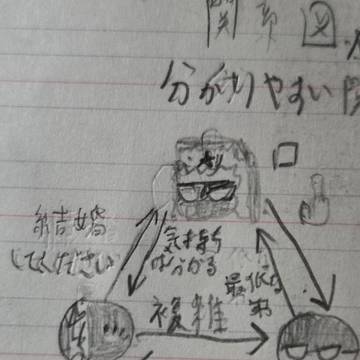 関節図
分かりやすい関
結婚
してください
気持ち
は分かる
最低な
男
複雑